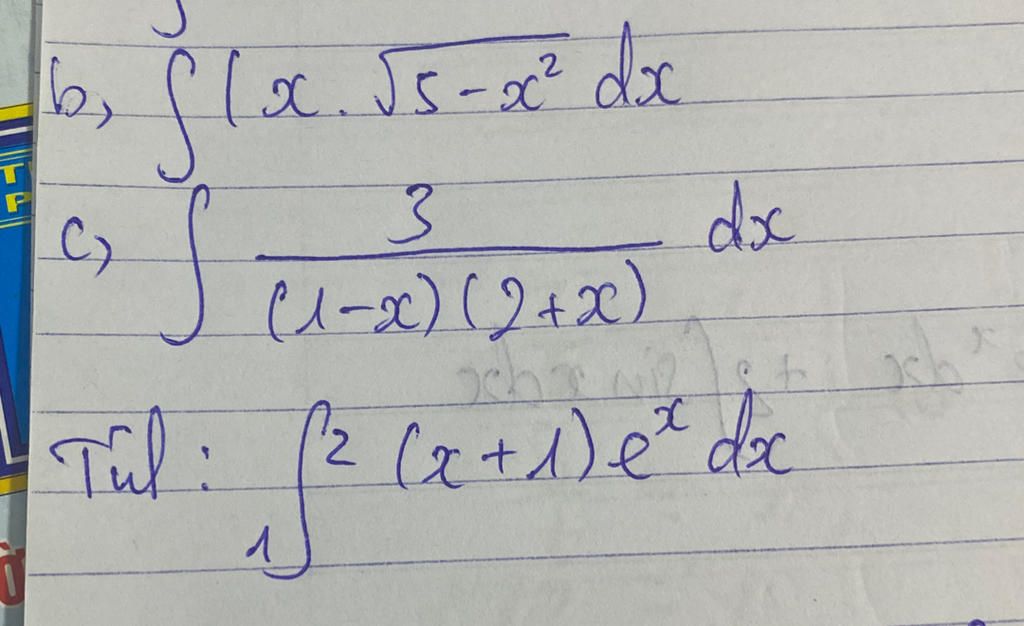 b, ∫ (x . √5 - x² dx
c, ∫ 3 / (1-x)(2+x) dx
: ∫₁² (x+1) eˣ dx